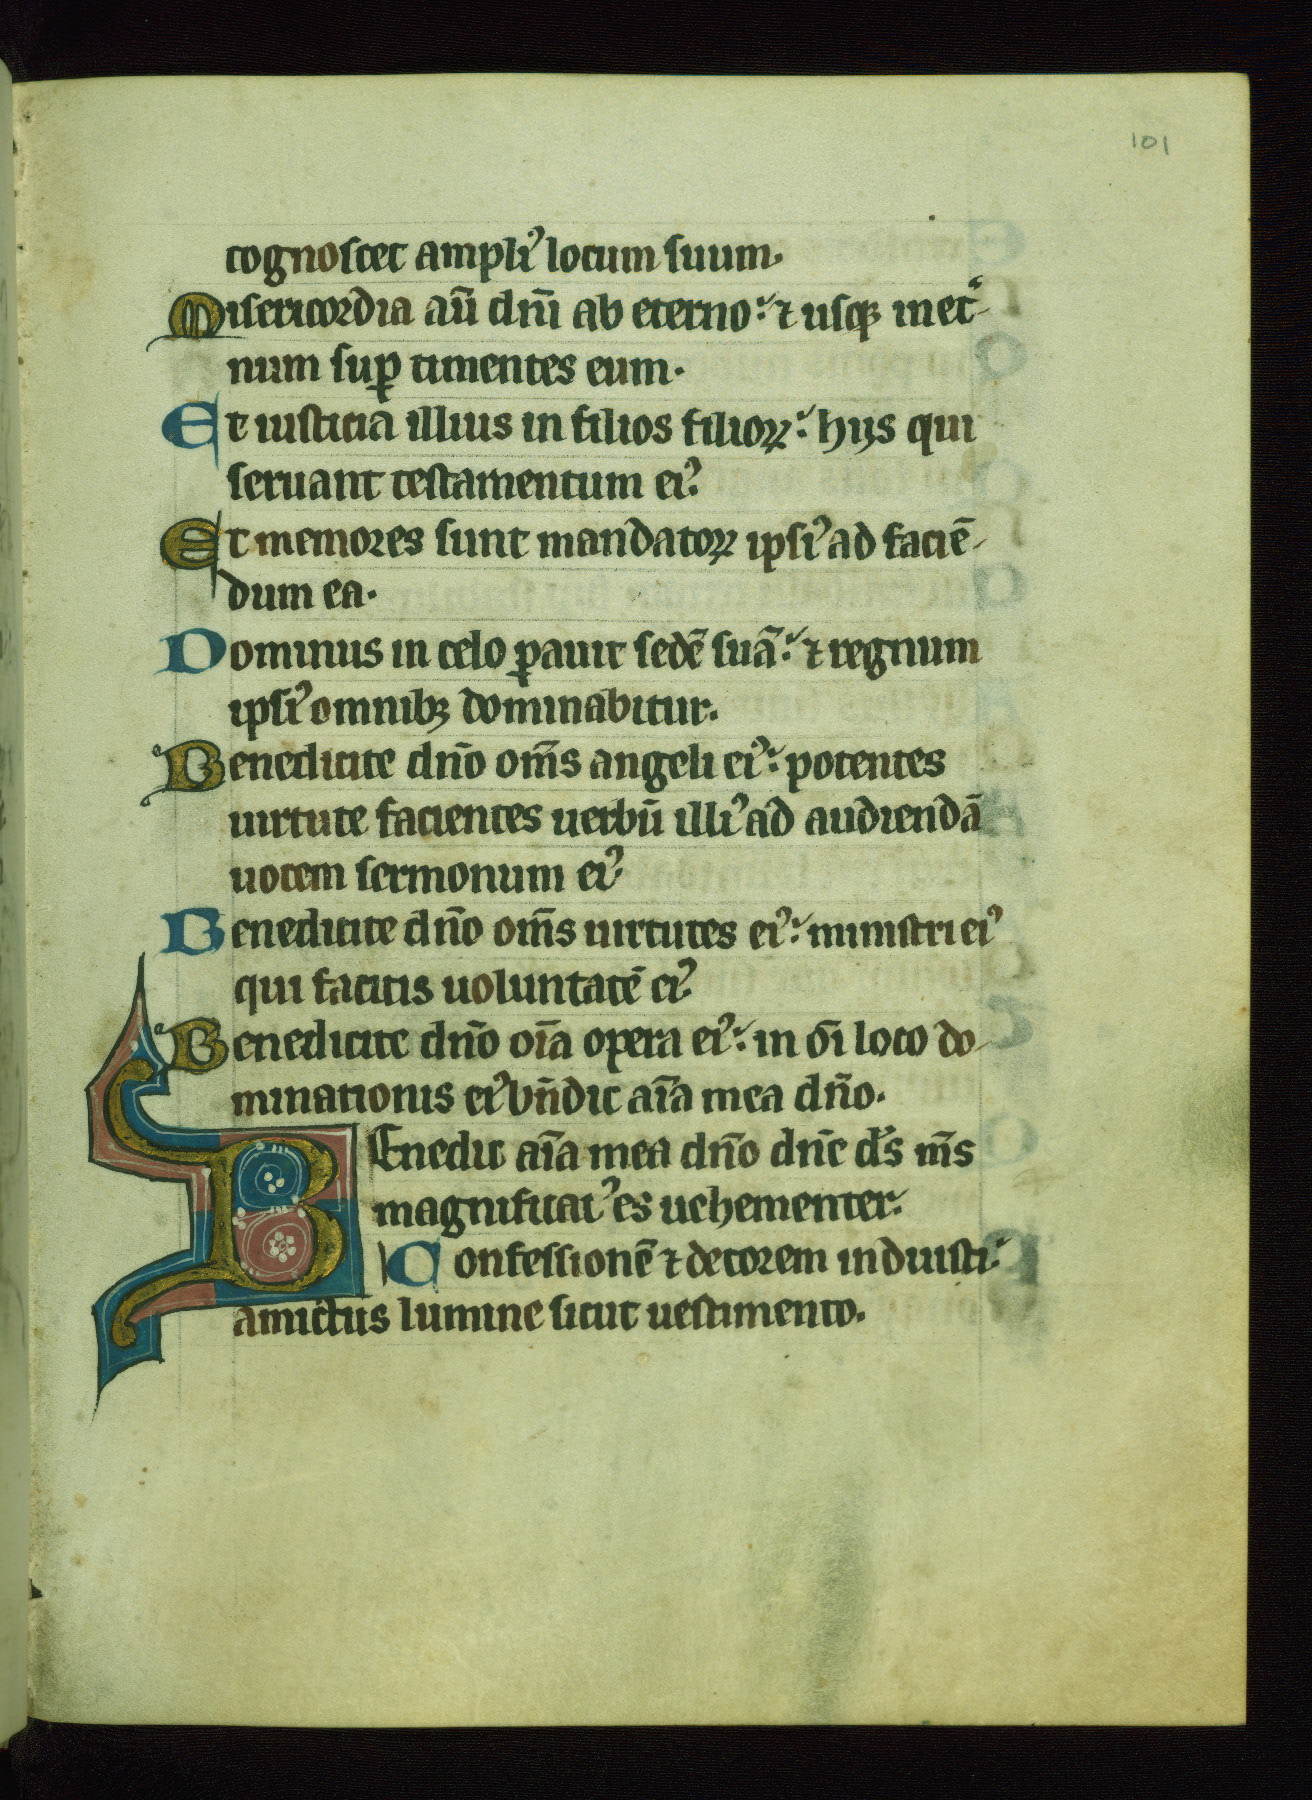 101
cognoscet ampliꝰ locum suum.
Misericordia aū dnī ab eterno: ⁊ usqꝫ in et͛-
num suꝑ timentes eum.
Et iusticia illius in filios filioꝝ: hijs qui
seruant testamentum eiꝰ.
Et memores sunt mandatoꝝ ipsiꝰ ad faciē-
dum ea.
Dominus in celo ꝑauit sedē suā: ⁊ regnum
ipsiꝰ omnibꝫ dominabitur.
Benedicite dn̄o om̄s angeli eiꝰ: potentes
uirtute facientes uerbū illiꝰ ad audiendā
uocem sermonum eiꝰ.
Benedicite dn̄o om̄s uirtutes eiꝰ: ministri eiꝰ
qui facitis uoluntatē eiꝰ.
Benedicite dn̄o oīa opera eiꝰ: in oī loco do-
minationis eiꝰ bn̄dic aīa mea dn̄o.
BEnedic aīa mea dn̄o dn̄e ds̄ m̄s
magnificatꝰ es uehementer.
Confessionē ⁊ decorem induisti:
amictus lumine sicut uestimento.